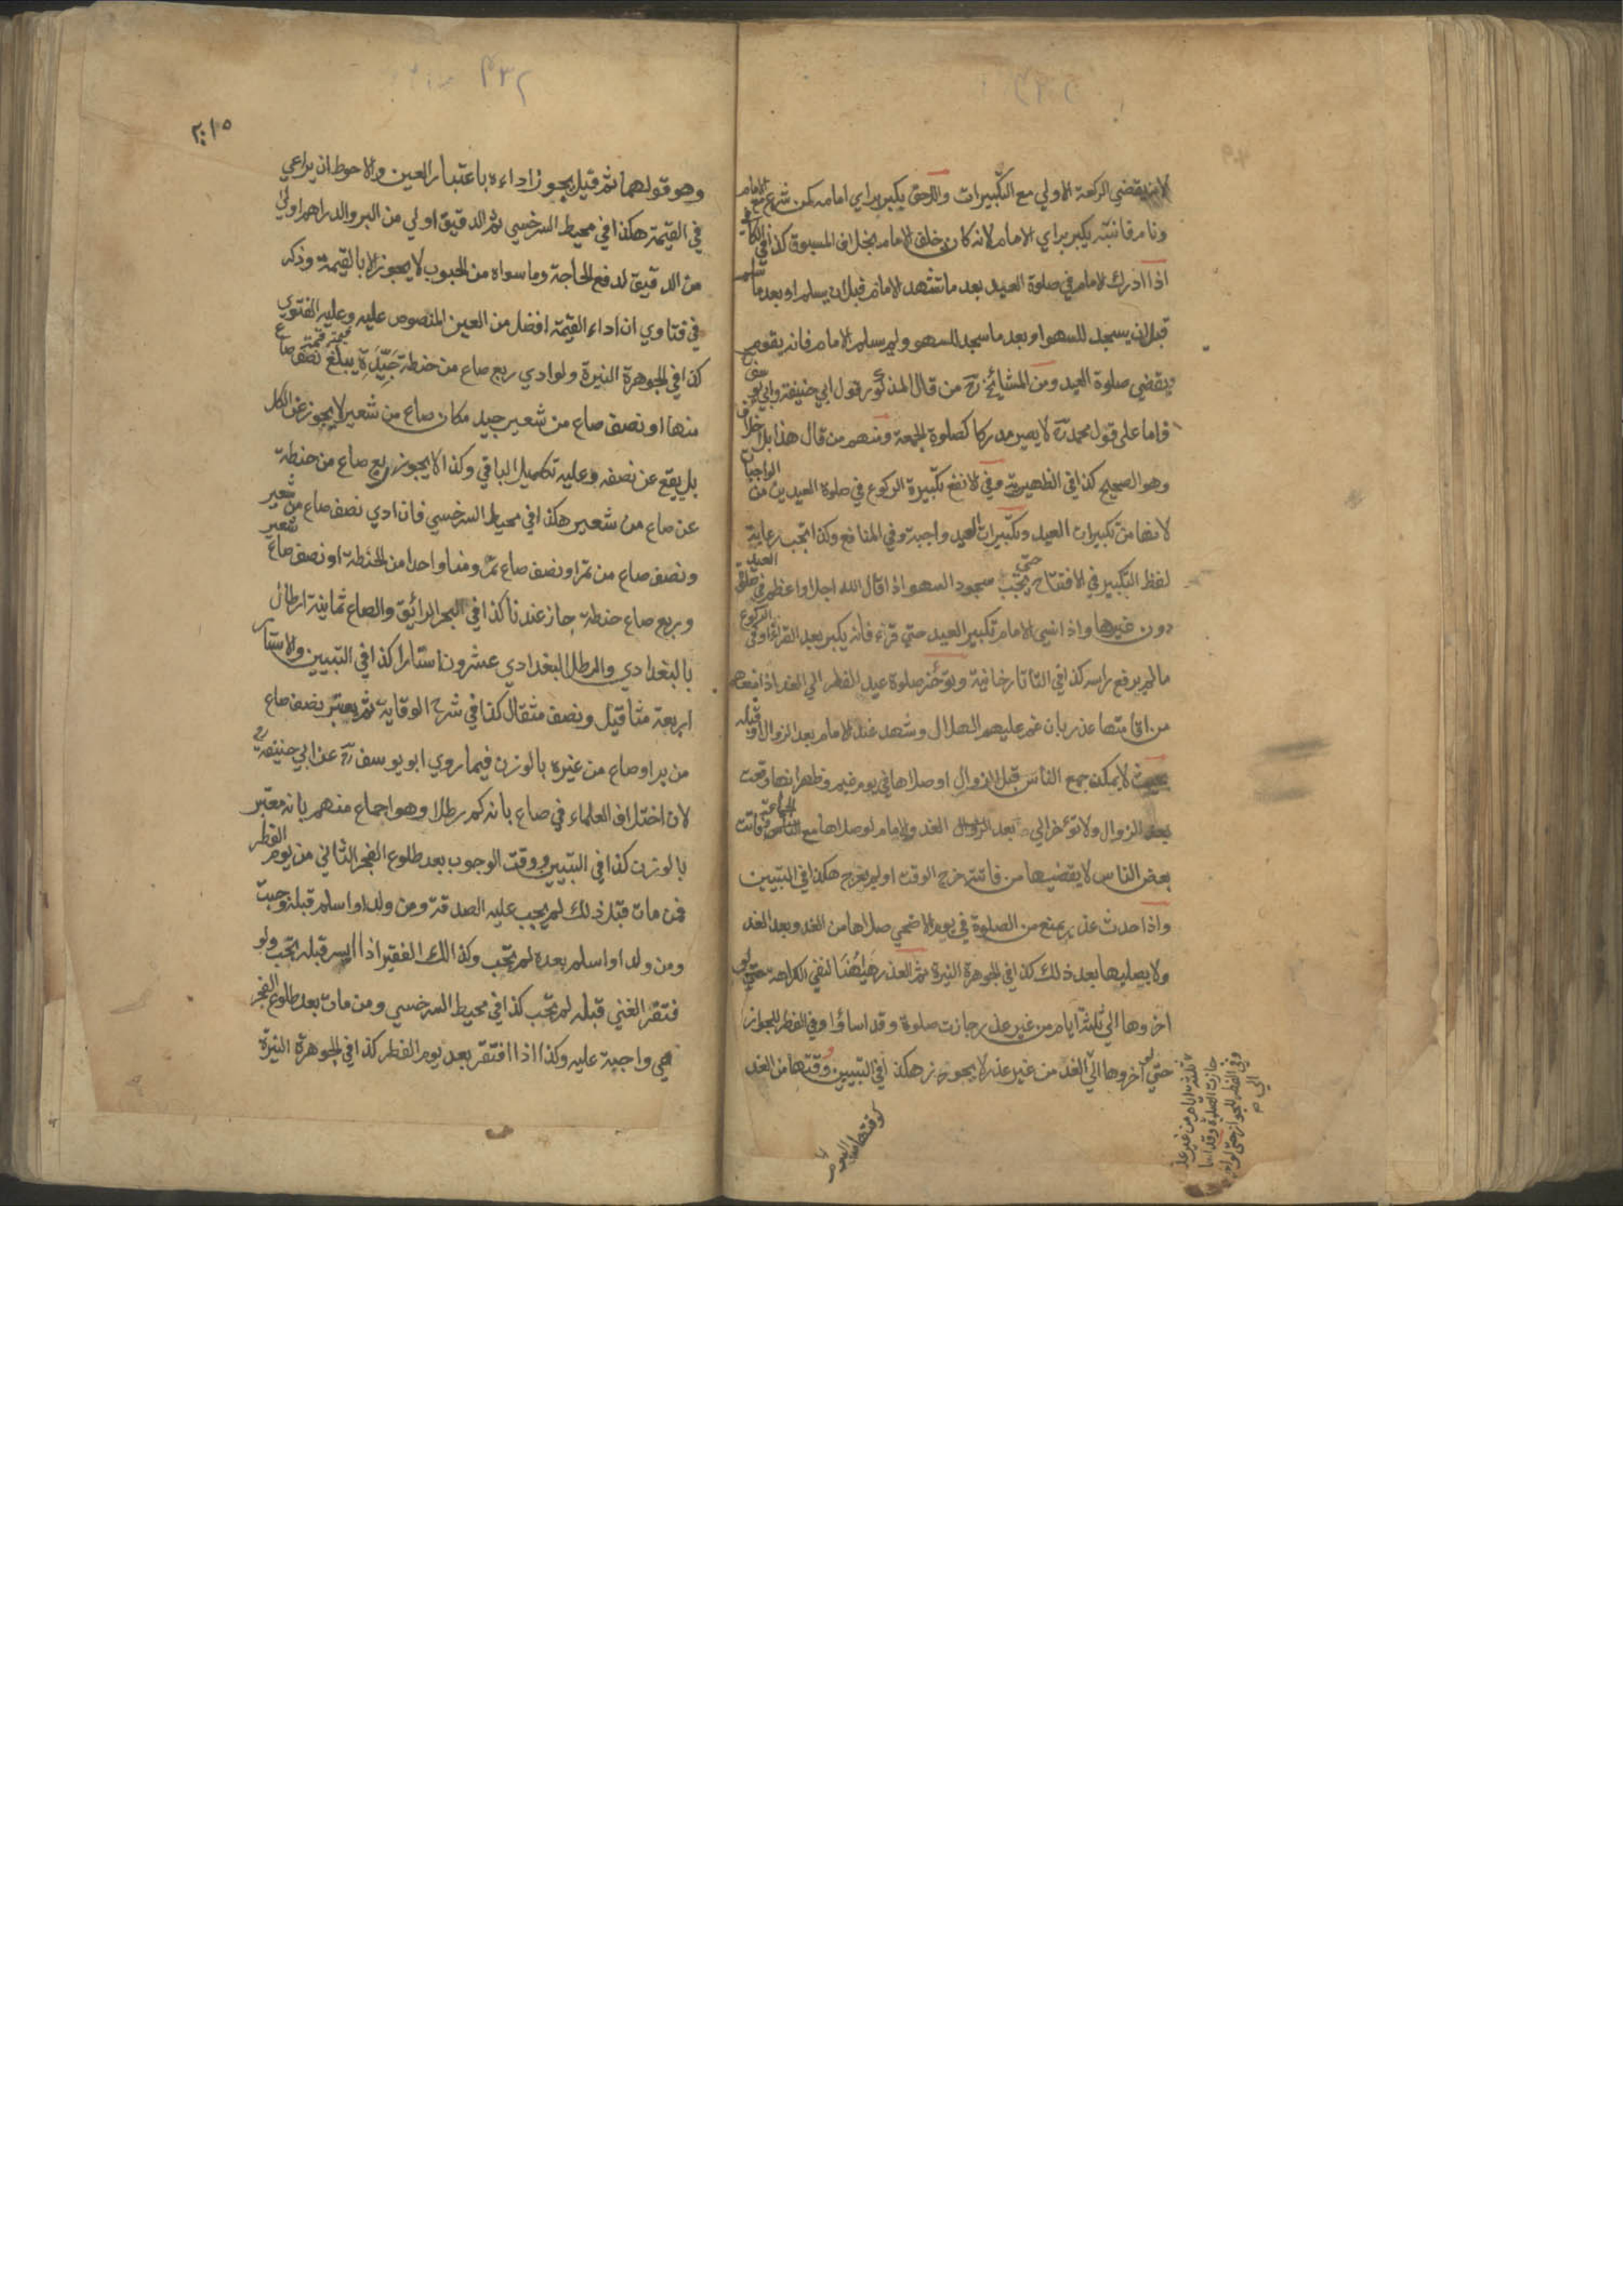 لانه يقضي الركعة الاولي مع التكبيرات واللاحق يكبر براي امامه كمن شرع مع الامام
ونام فانتبه يكبر براي الامام لانه كان خلف الامام بخلاف المسبوق كذا في الكافي
اذا ادرك الامام في صلوة العيد بعد ما تشهد الامام قبل ان يسلم او بعد ما سلم
قبل ان يسجد للسهو او بعد ما سجد للسهو ولم يسلم الامام فانه يقوم
ويقضي صلوة العيد ومن المشائخ رح من قال المذكور قول ابي حنيفة وابي يوسف
فاما على قول محمد رح لا يصير مدركا كصلوة الجمعة ومنهم من قال هذا بلا خلاف
وهو الصحيح كذا في الظهيرية وفي لانفع تكبيرة الركوع في صلوة العيدين من الواجبات
لانها من تكبيرات العيد وتكبيرات العيد واجبة وفي المنافع وكذا تجب رعاية
لفظ التكبير في الافتتاح حتى يجب سجود السهو اذا قال الله اجل او اعظم في صلوة العيد
دون غيرها واذا نسي الامام تكبير العيد حتى قرء فانه يكبر بعد القراءة او في الركوع
مالم يرفع راسه كذا في التاتارخانية ويؤخر صلوة عيد الفطر الي الغد اذا منعهم
من اقامتها عذر بان غم عليهم الهلال وشهد عند الامام بعد الزوال او قبله
بحيث لا يمكن جمع الناس قبل الزوال او صلاها في يوم غيم وظهر انها وقعت
بعد الزوال ولا تؤخر الي بعد الزوال الغد والامام لو صلاها مع الجماعة وفاتت
بعض الناس لا يقضيها من فاتته خرج الوقت او لم يخرج هكذا في التبيين
واذا حدث عذر يمنع من الصلوة في يوم الاضحي صلاها من الغد وبعد الغد
ولا يصليها بعد ذلك كذا في الجوهرة النيرة ثم العذر ههنا لنفي الكراهة حتى لو
اخروها الي ثلثة ايام من غير عذر جازت صلوة وقد اساؤا وفي الفطر للجواز
حتى لو اخروها الي الغد من غير عذر لا يجوز هكذا في التبيين ووقتها من الغد
كوقتها من اليوم
ثلثة ايام من غير عذر
جازت الصلوة وقد اسا
وفي الفطر للجواز حتى لو اخر
الي
وهو قولهما ثم قيل يجوز اداءه باعتبار العين والاحوط ان يراعي
في القيمة هكذا في محيط السرخسي ثم الدقيق اولي من البر والدراهم اولي
من الدقيق لدفع الحاجة وما سواه من الحبوب لا يجوز الا بالقيمة وذكر
في فتاوي ان اداء القيمة افضل من العين المنصوص عليه وعليه الفتوي
كذا في الجوهرة النيرة ولو ادي ربع صاع من حنطة جَيِّدَة يبلغ قيمته قيمة نصف صاع
منها او نصف صاع من شعير جيد مكان صاع من شعير لا يجوز عن الكل
بل يقع عن نصفه وعليه تكميل الباقي وكذا لا يجوز ربع صاع من حنطة
عن صاع من شعير هكذا في محيط السرخسي فان ادي نصف صاع من شعير
ونصف صاع من تمر او نصف صاع تمر ومنا واحدا من الحنطة او نصف صاع شعير
وربع صاع حنطة جاز عندنا كذا في البحر الرائق والصاع ثمانية ارطال
بالبغدادي والرطل البغدادي عشرون استارا كذا في التبيين والاستار
اربعة مثاقيل ونصف مثقال كذا في شرح الوقاية ثم يعتبر نصف صاع
من بر او صاع من غيره بالوزن فيما روي ابو يوسف رح عن ابي حنيفة رح
لان اختلاف العلماء في صاع بانه كم رطلا وهو اجماع منهم بانه معتبر
بالوزن كذا في التبيين ووقت الوجوب بعد طلوع الفجر الثاني من يوم الفطر
فمن مات قبل ذلك لم يجب عليه الصدقة ومن ولد او اسلم قبله وجبت
ومن ولد او اسلم بعده لم تجب وكذالك الفقير اذا ايسر قبله تجب ولو
فتقر الغني قبله لم تجب كذا في محيط السرخسي ومن مات بعد طلوع الفجر
فهي واجبة عليه وكذا اذا افتقر بعد يوم الفطر كذا في الجوهرة النيرة